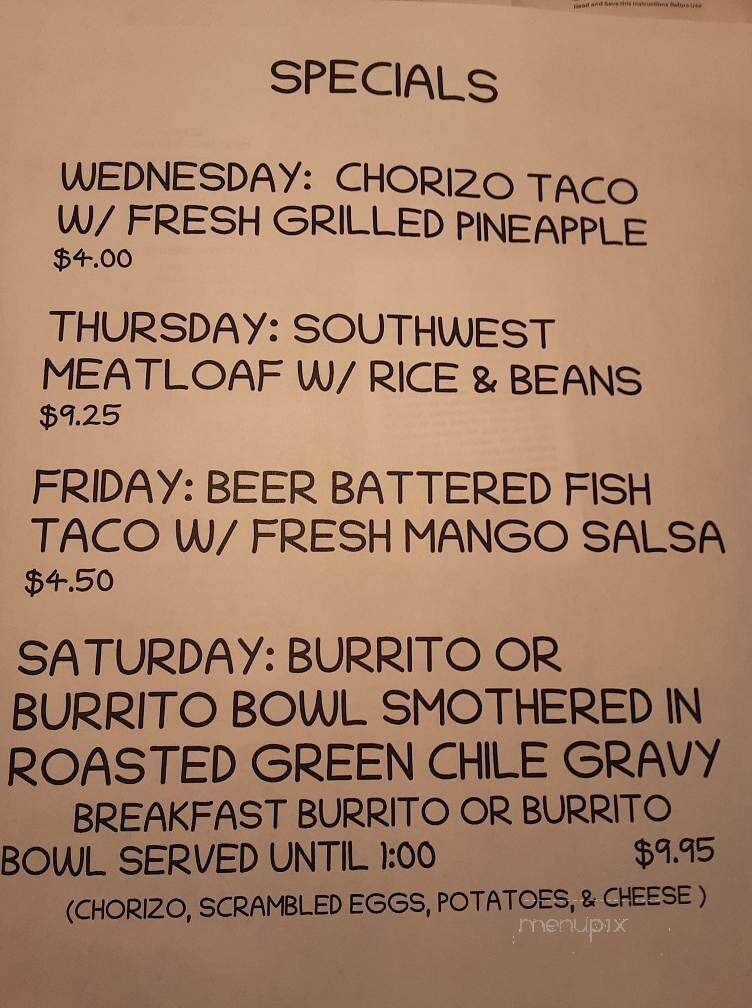 Read and Save this Instructions Before Use
SPECIALS
WEDNESDAY: CHORIZO TACO
W/ FRESH GRILLED PINEAPPLE
$4.00
THURSDAY: SOUTHWEST
MEATLOAF W/ RICE & BEANS
$9.25
FRIDAY: BEER BATTERED FISH
TACO W/ FRESH MANGO SALSA
$4.50
SATURDAY: BURRITO OR
BURRITO BOWL SMOTHERED IN
ROASTED GREEN CHILE GRAVY
BREAKFAST BURRITO OR BURRITO
BOWL SERVED UNTIL 1:00 $9.95
(CHORIZO, SCRAMBLED EGGS, POTATOES, & CHEESE )
menupix